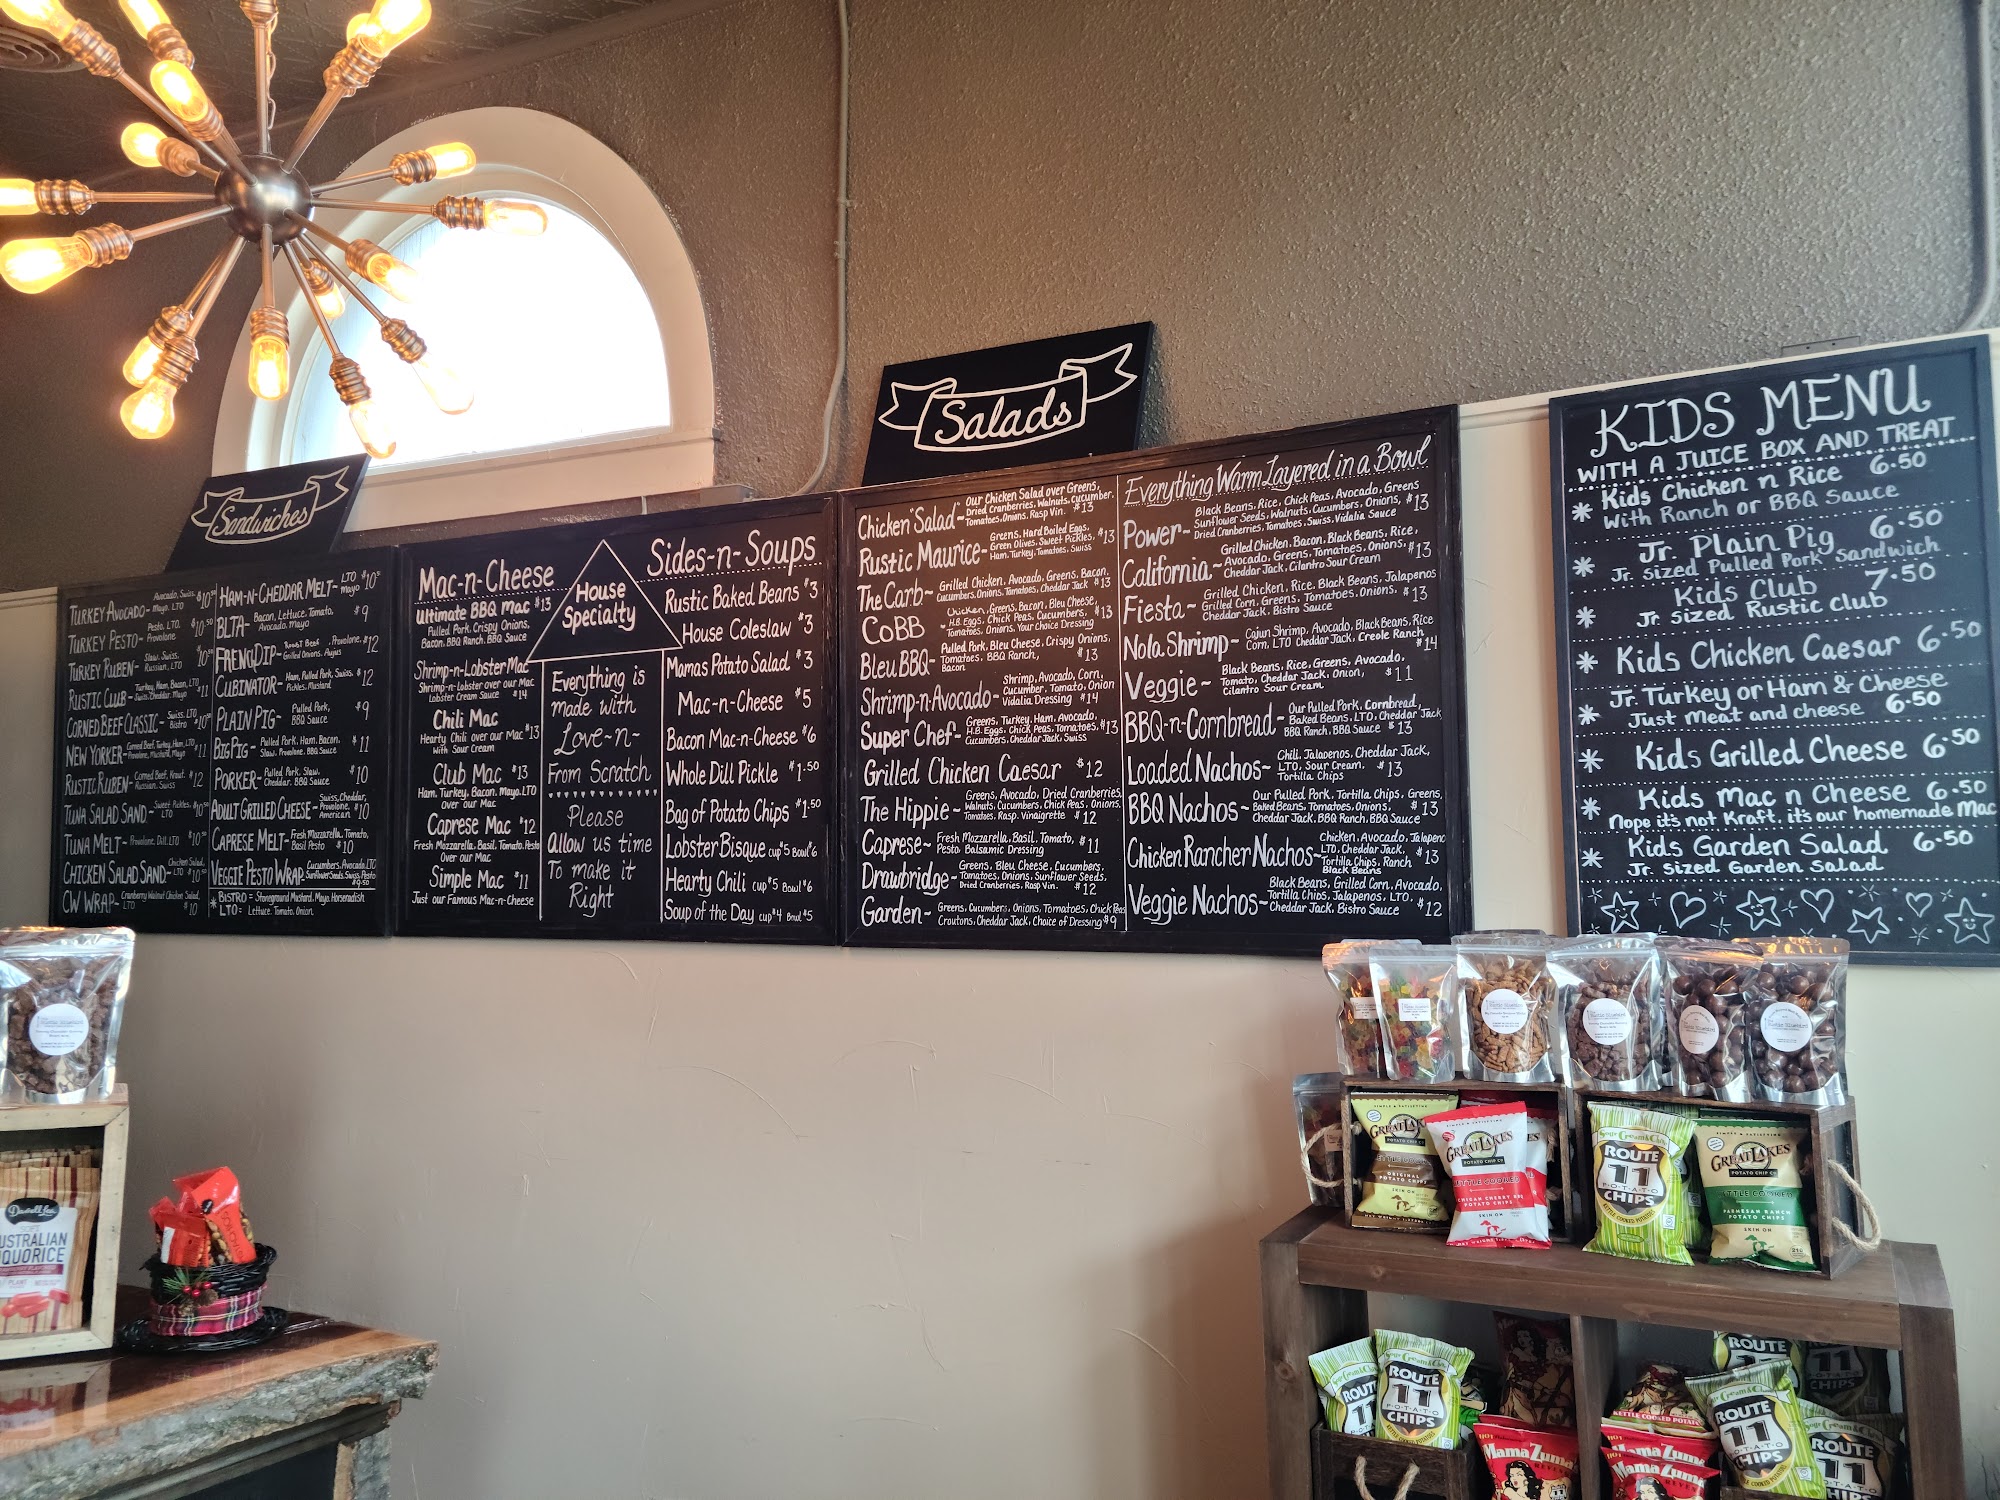 Sandwiches
TURKEY AVOCADO~ Avocado, Swiss, $10.50
Mayo, LTO
TURKEY PESTO~ Pesto, LTO, $10.50
Provolone
TURKEY RUBEN~ Slaw, Swiss, $10.50
Russian, LTO
RUSTIC CLUB~ Turkey, Ham, Bacon, LTO $11
Swiss, Cheddar, Mayo
CORNED BEEF CLASSIC~ Swiss, LTO $10.50
Bistro
NEW YORKER~ Corned Beef, Turkey, Ham, LTO $11
Provolone, Mustard, Mayo
RUSTIC RUBEN~ Corned Beef, Kraut, $12
Russian, Swiss
TUNA SALAD SAND.~ Sweet Pickles, $10.50
LTO
TUNA MELT~ Provolone, Dill, LTO $10.50
CHICKEN SALAD SAND.~ Chicken Salad, $10.50
LTO
CW WRAP~ Cranberry Walnut Chicken Salad, $10
LTO
HAM-N-CHEDDAR MELT~ LTO $10.50
Mayo
BLTA~ Bacon, Lettuce, Tomato, $9
Avocado, Mayo
FRENCH DIP~ Roast Beef, Provolone, $12
Grilled Onions, Aujus
CUBINATOR~ Ham, Pulled Pork, Swiss, $12
Pickles, Mustard
PLAIN PIG~ Pulled Pork, $9
BBQ Sauce
BIG PIG~ Pulled Pork, Ham, Bacon, $11
Slaw, Provolone, BBQ Sauce
PORKER~ Pulled Pork, Slaw, $10
Cheddar, BBQ Sauce
ADULT GRILLED CHEESE~ Swiss, Cheddar,
Provolone, American $10
CAPRESE MELT~ Fresh Mozzarella, Tomato,
Basil Pesto $10
VEGGIE PESTO WRAP~ Cucumbers, Avocado, LTO
Sunflower Seeds, Swiss, Pesto
$9.50
* BISTRO = Stoneground Mustard, Mayo, Horseradish
LTO = Lettuce, Tomato, Onion
Mac-n-Cheese
Ultimate BBQ Mac $13
Pulled Pork, Crispy Onions,
Bacon, BBQ Ranch, BBQ Sauce
Shrimp-n-Lobster Mac
Shrimp-n-Lobster over our Mac
Lobster Cream Sauce $14
Chili Mac
Hearty Chili over our Mac $13
With Sour Cream
Club Mac $13
Ham, Turkey, Bacon, Mayo, LTO
Over our Mac
Caprese Mac $12
Fresh Mozzarella, Basil, Tomato, Pesto
Over our Mac
Simple Mac $11
Just our Famous Mac-n-Cheese
House
Specialty
Everything is
made with
Love-n-
From Scratch
Please
Allow us time
To make it
Right
Sides-n-Soups
Rustic Baked Beans $3
House Coleslaw $3
Mamas Potato Salad $3
Mac-n-Cheese $5
Bacon Mac-n-Cheese $6
Whole Dill Pickle $1.50
Bag of Potato Chips $1.50
Lobster Bisque cup $5 Bowl $6
Hearty Chili cup $5 Bowl $6
Soup of the Day cup $4 Bowl $5
Salads
Chicken "Salad"~ Our Chicken Salad over Greens,
Dried Cranberries, Walnuts, Cucumber,
Tomatoes, Onions, Rasp Vin. $13
Rustic Maurice~ Greens, Hard Boiled Eggs,
Green Olives, Sweet Pickles, $13
Ham, Turkey, Tomatoes, Swiss
The Carb~ Grilled Chicken, Avocado, Greens, Bacon,
Cucumbers, Onions, Tomatoes, Cheddar Jack $13
CoBB Chicken, Greens, Bacon, Bleu Cheese,
H.B. Eggs, Chick Peas, Cucumbers, $13
Tomatoes, Onions, Your Choice Dressing
Bleu BBQ~ Pulled Pork, Bleu Cheese, Crispy Onions,
Tomatoes, BBQ Ranch, $13
Bacon
Shrimp-n-Avocado~ Shrimp, Avocado, Corn,
Cucumber, Tomato, Onion
Vidalia Dressing $14
Super Chef~ Greens, Turkey, Ham, Avocado,
H.B. Eggs, Chick Peas, Tomatoes, $13
Cucumbers, Cheddar Jack, Swiss
Grilled Chicken Caesar $12
The Hippie~ Greens, Avocado, Dried Cranberries,
Walnuts, Cucumbers, Chick Peas, Onions,
Tomatoes, Rasp. Vinaigrette $12
Caprese~ Fresh Mozzarella, Basil, Tomato, $11
Pesto Balsamic Dressing
Drawbridge~ Greens, Bleu Cheese, Cucumbers,
Tomatoes, Onions, Sunflower Seeds,
Dried Cranberries, Rasp Vin. $12
Garden~ Greens, Cucumbers, Onions, Tomatoes, Chick Peas
Croutons, Cheddar Jack, Choice of Dressing $9
Everything Warm Layered in a Bowl
Power~ Black Beans, Rice, Chick Peas, Avocado, Greens
Sunflower Seeds, Walnuts, Cucumbers, Onions, $13
Dried Cranberries, Tomatoes, Swiss, Vidalia Sauce
California~ Grilled Chicken, Bacon, Black Beans, Rice,
Avocado, Greens, Tomatoes, Onions, $13
Cheddar Jack, Cilantro Sour Cream
Fiesta~ Grilled Chicken, Rice, Black Beans, Jalapenos
Grilled Corn, Greens, Tomatoes, Onions, $13
Cheddar Jack, Bistro Sauce
Nola Shrimp~ Cajun Shrimp, Avocado, Black Beans, Rice
Corn, LTO Cheddar Jack, Creole Ranch
$14
Veggie~ Black Beans, Rice, Greens, Avocado,
Tomato, Cheddar Jack, Onion, $11
Cilantro Sour Cream
BBQ-n-Cornbread~ Our Pulled Pork, Cornbread,
Baked Beans, LTO, Cheddar Jack
BBQ Ranch, BBQ Sauce $13
Loaded Nachos~ Chili, Jalapenos, Cheddar Jack,
LTO, Sour Cream, $13
Tortilla Chips
BBQ Nachos~ Our Pulled Pork, Tortilla Chips, Greens,
Baked Beans, Tomatoes, Onions, $13
Cheddar Jack, BBQ Ranch, BBQ Sauce
Chicken Rancher Nachos~ Chicken, Avocado, Jalapeno
LTO, Cheddar Jack, $13
Tortilla Chips, Ranch
Black Beans
Veggie Nachos~ Black Beans, Grilled Corn, Avocado,
Tortilla Chips, Jalapenos, LTO,
Cheddar Jack, Bistro Sauce $12
KIDS MENU
WITH A JUICE BOX AND TREAT
* Kids Chicken n Rice 6.50
With Ranch or BBQ Sauce
* Jr. Plain Pig 6.50
Jr. Sized Pulled Pork Sandwich
* Kids Club 7.50
Jr Sized Rustic Club
* Kids Chicken Caesar 6.50
* Jr. Turkey or Ham & Cheese
Just meat and cheese 6.50
* Kids Grilled Cheese 6.50
* Kids Mac n Cheese 6.50
Nope it's not Kraft, it's our homemade Mac
* Kids Garden Salad 6.50
Jr. Sized Garden Salad
Darrell Lea
SOFT
AUSTRALIAN
LIQUORICE
SIMPLE & SATISFYING
GREAT LAKES
POTATO CHIP CO
KETTLE COOKED
ORIGINAL
POTATO CHIPS
SKIN ON
GREAT LAKES
POTATO CHIP CO
KETTLE COOKED
MICHIGAN CHERRY BBQ
POTATO CHIPS
SKIN ON
Sour Cream & Chive
ROUTE
11
POTATO
CHIPS
GREAT LAKES
POTATO CHIP CO
KETTLE COOKED
PARMESAN RANCH
POTATO CHIPS
SKIN ON
ROUTE
11
ROUTE
11
POTATO
CHIPS
Mama Zuma's
REVENGE
KETTLE COOKED POTATO
Mama Zuma's
ROUTE
11
POTATO
CHIPS
ROUTE
11
CHIPS